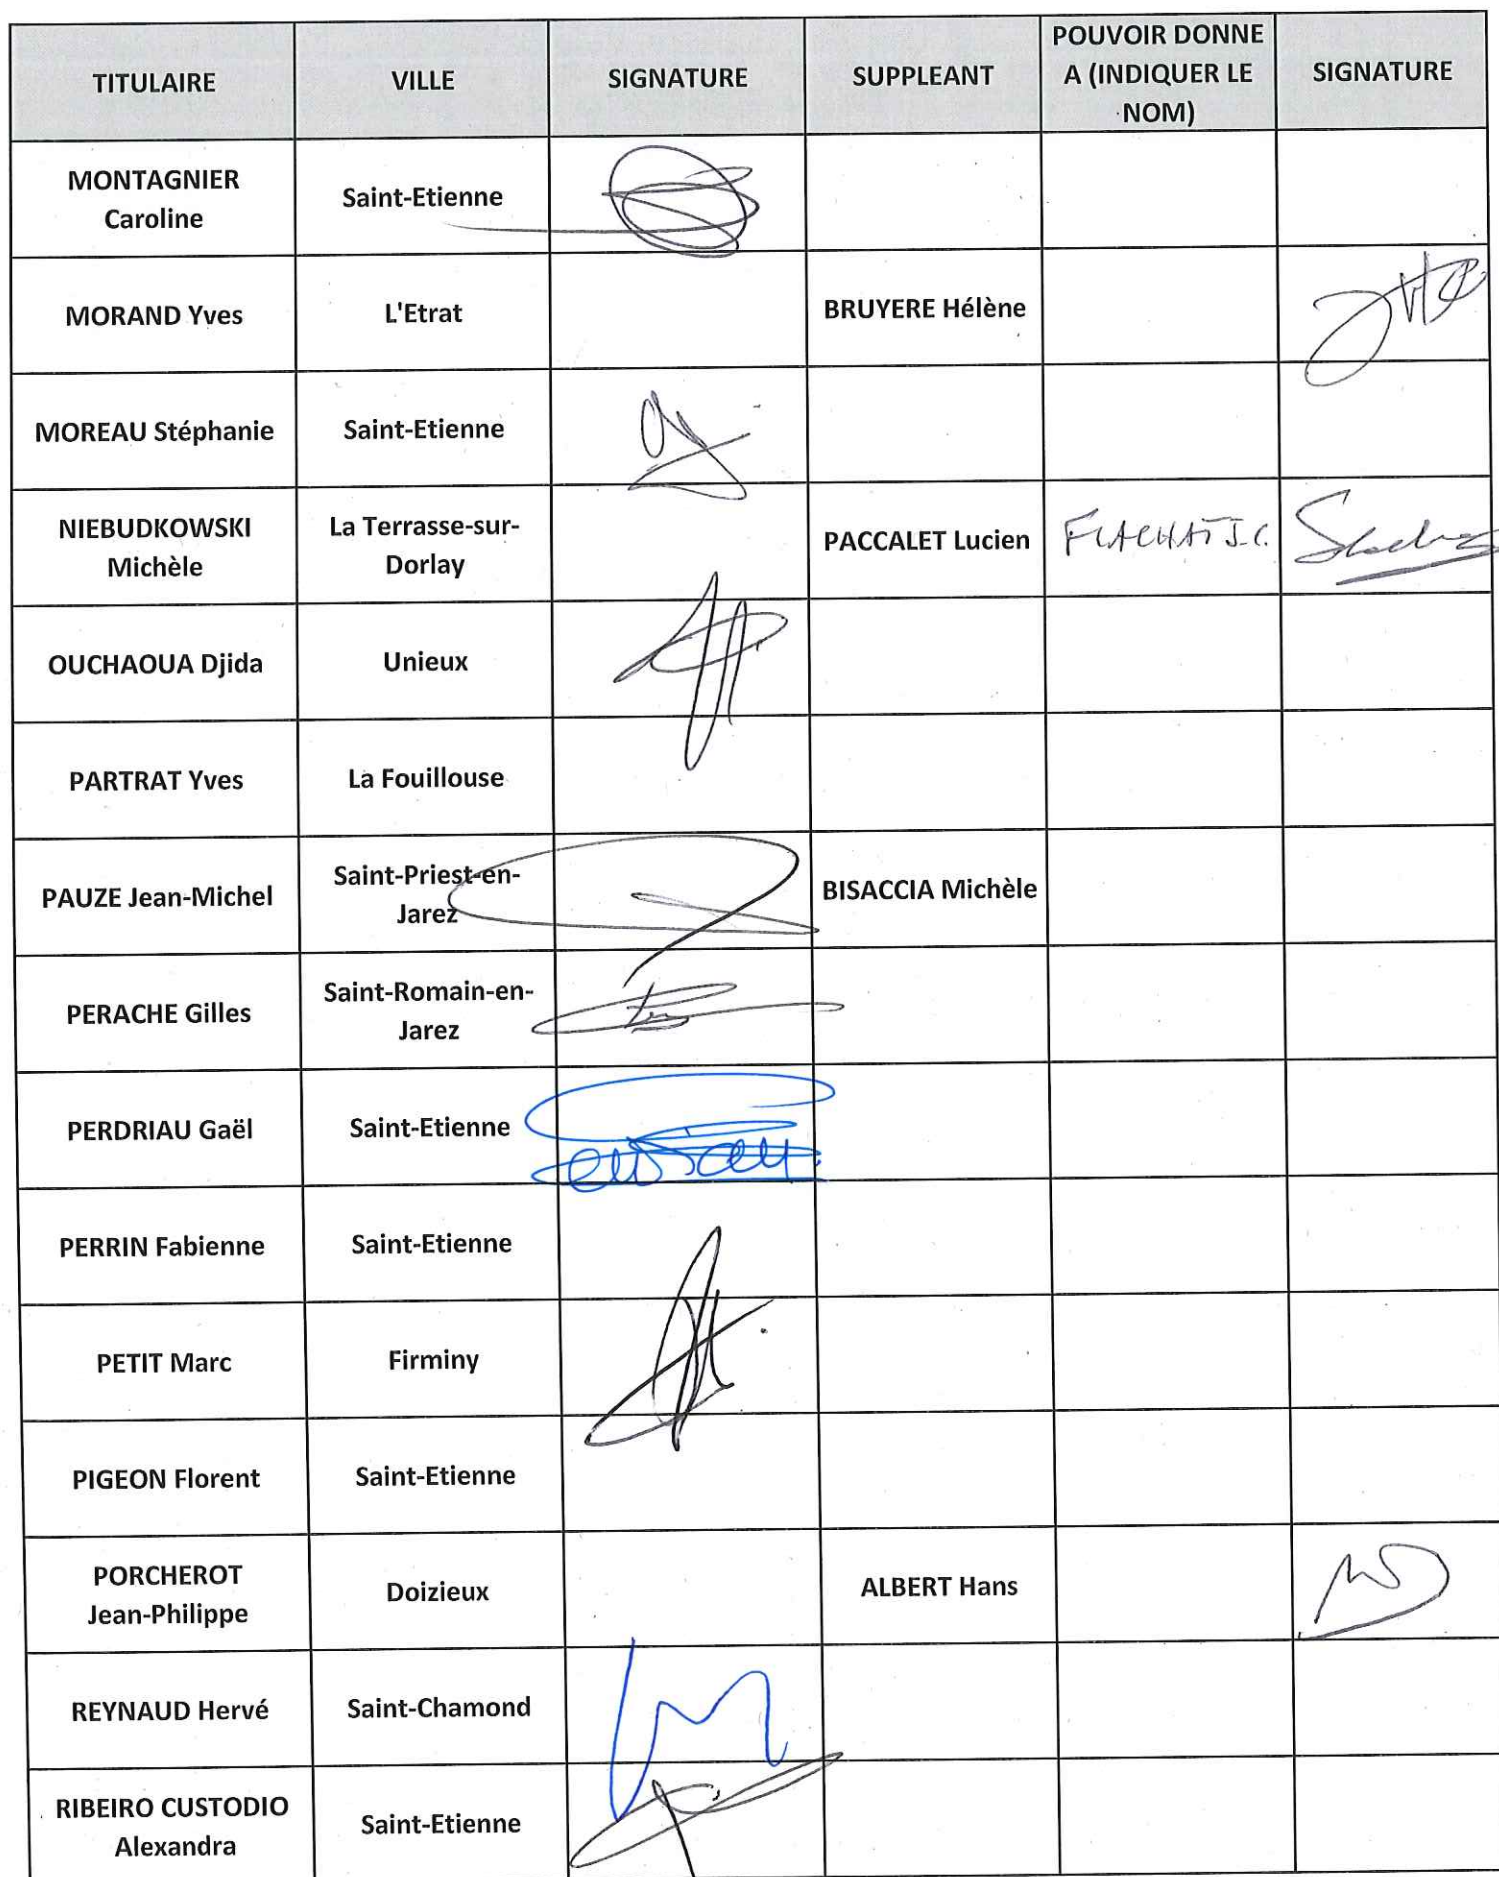 TITULAIRE
VILLE
SIGNATURE
SUPPLEANT
POUVOIR DONNE
A (INDIQUER LE
NOM)
SIGNATURE
MONTAGNIER
Caroline
Saint-Etienne
MORAND Yves
L'Etrat
BRUYERE Hélène
MOREAU Stéphanie
Saint-Etienne
NIEBUDKOWSKI
Michèle
La Terrasse-sur-
Dorlay
PACCALET Lucien
FLACHAT J.C.
OUCHAOUA Djida
Unieux
PARTRAT Yves
La Fouillouse
PAUZE Jean-Michel
Saint-Priest-en-
Jarez
BISACCIA Michèle
PERACHE Gilles
Saint-Romain-en-
Jarez
PERDRIAU Gaël
Saint-Etienne
PERRIN Fabienne
Saint-Etienne
PETIT Marc
Firminy
PIGEON Florent
Saint-Etienne
PORCHEROT
Jean-Philippe
Doizieux
ALBERT Hans
REYNAUD Hervé
Saint-Chamond
RIBEIRO CUSTODIO
Alexandra
Saint-Etienne